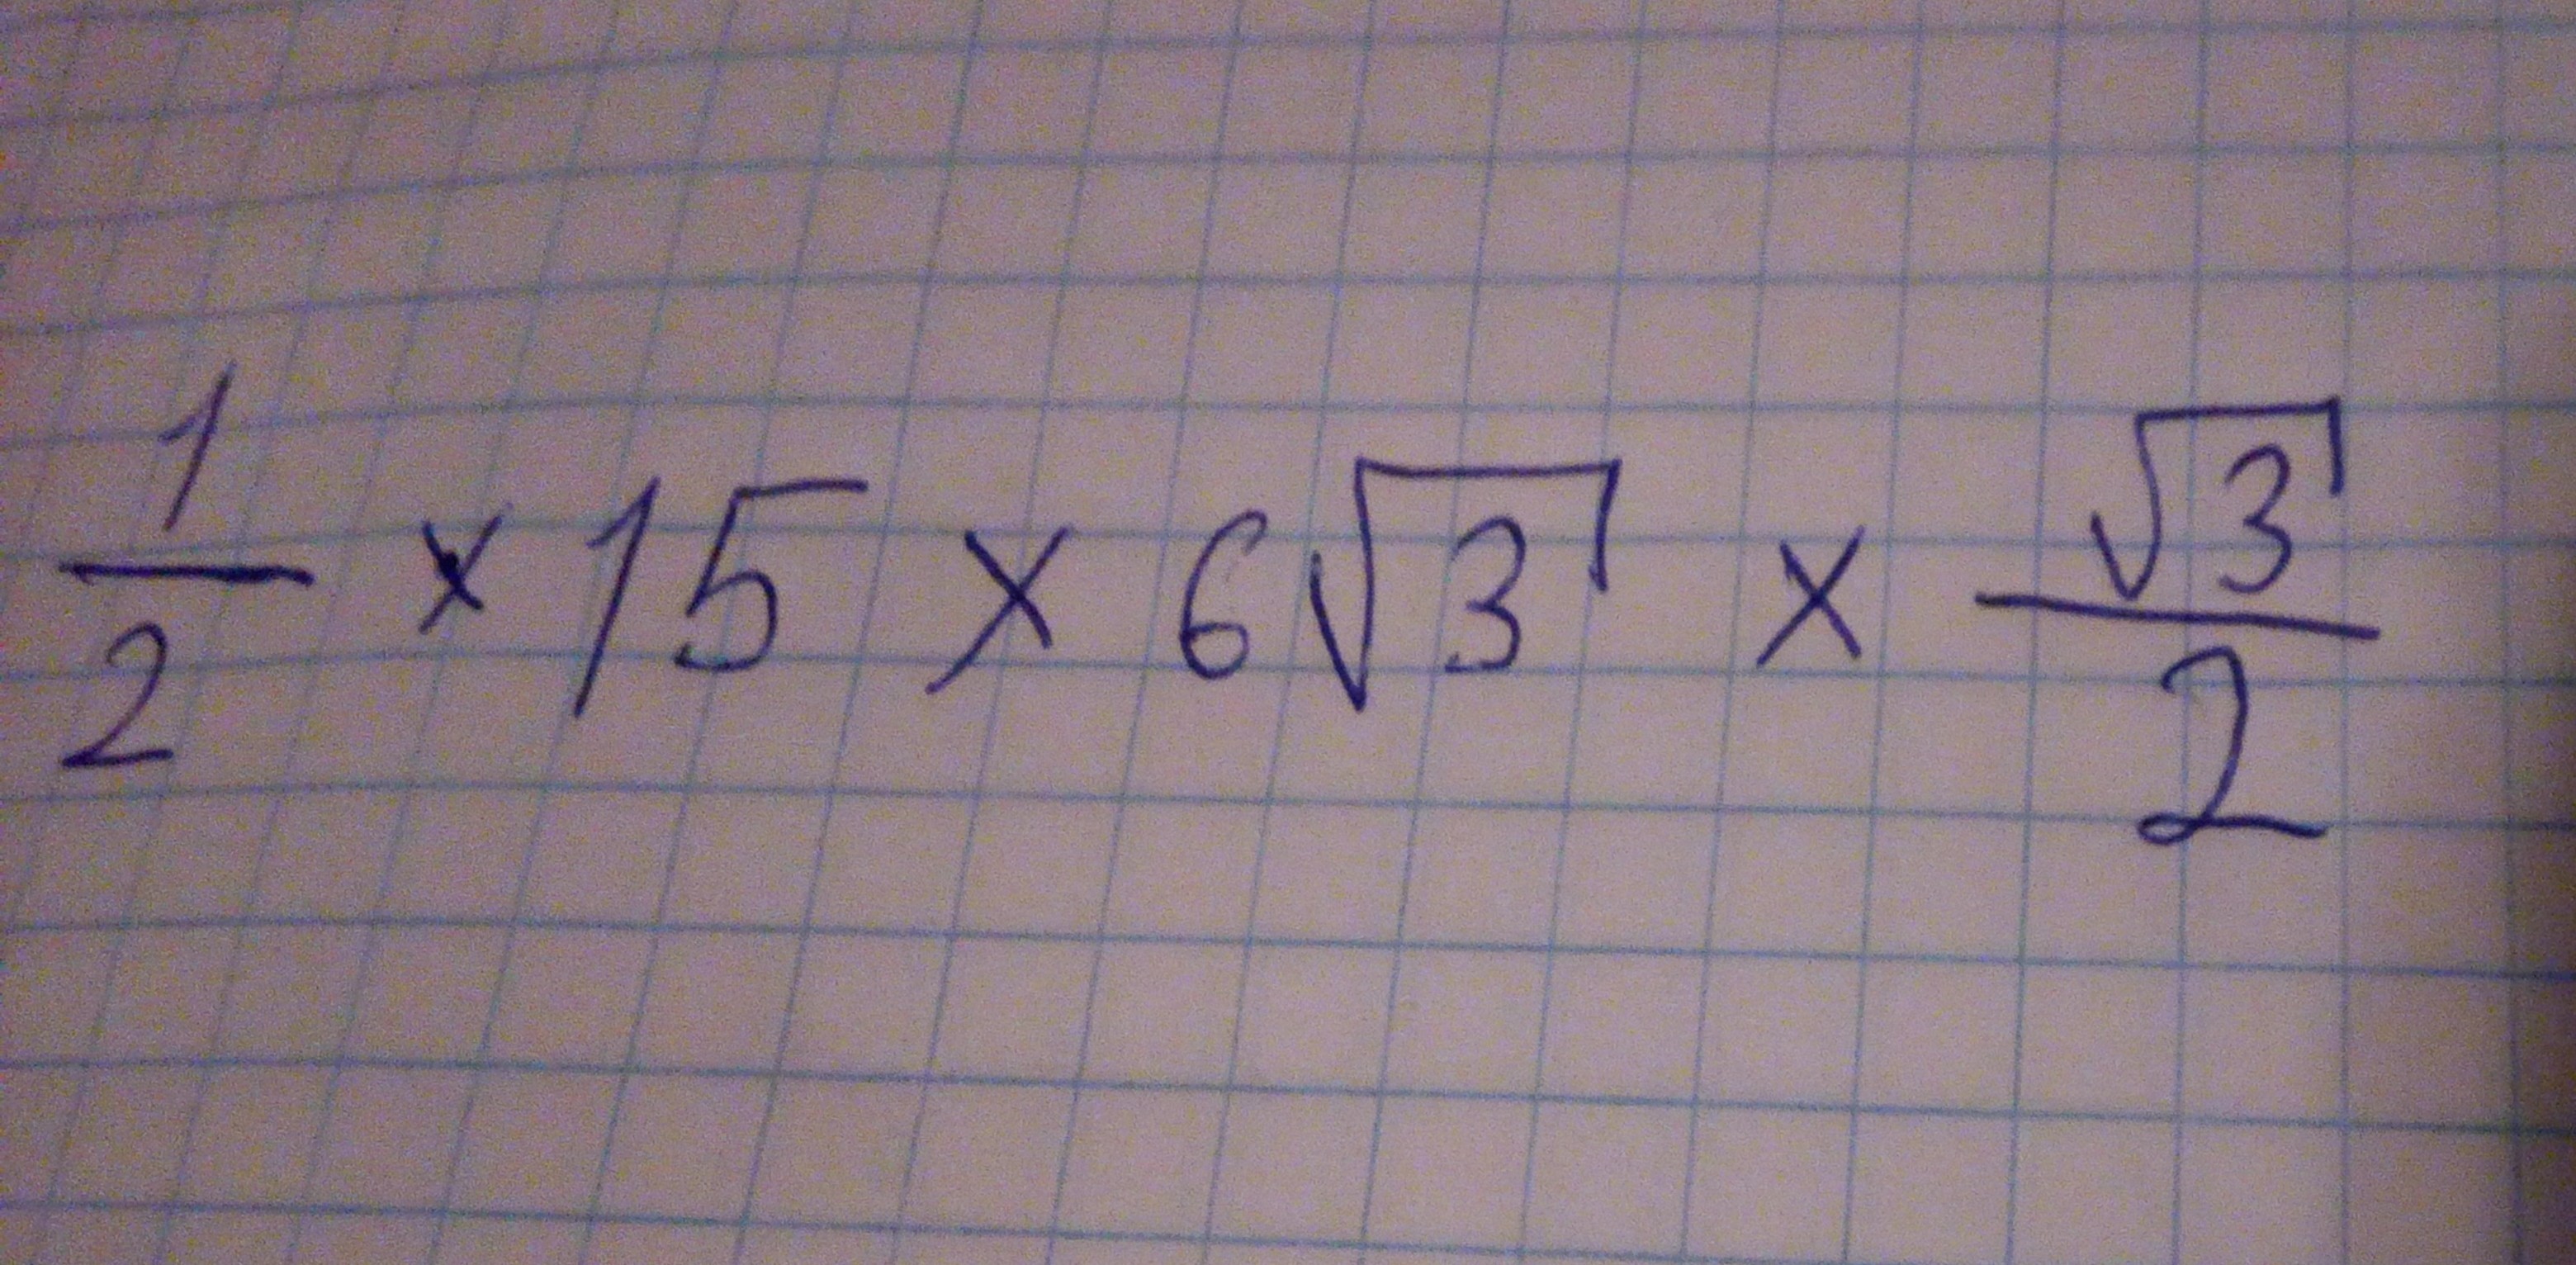 1/2 × 15 × 6√3 × √3/2